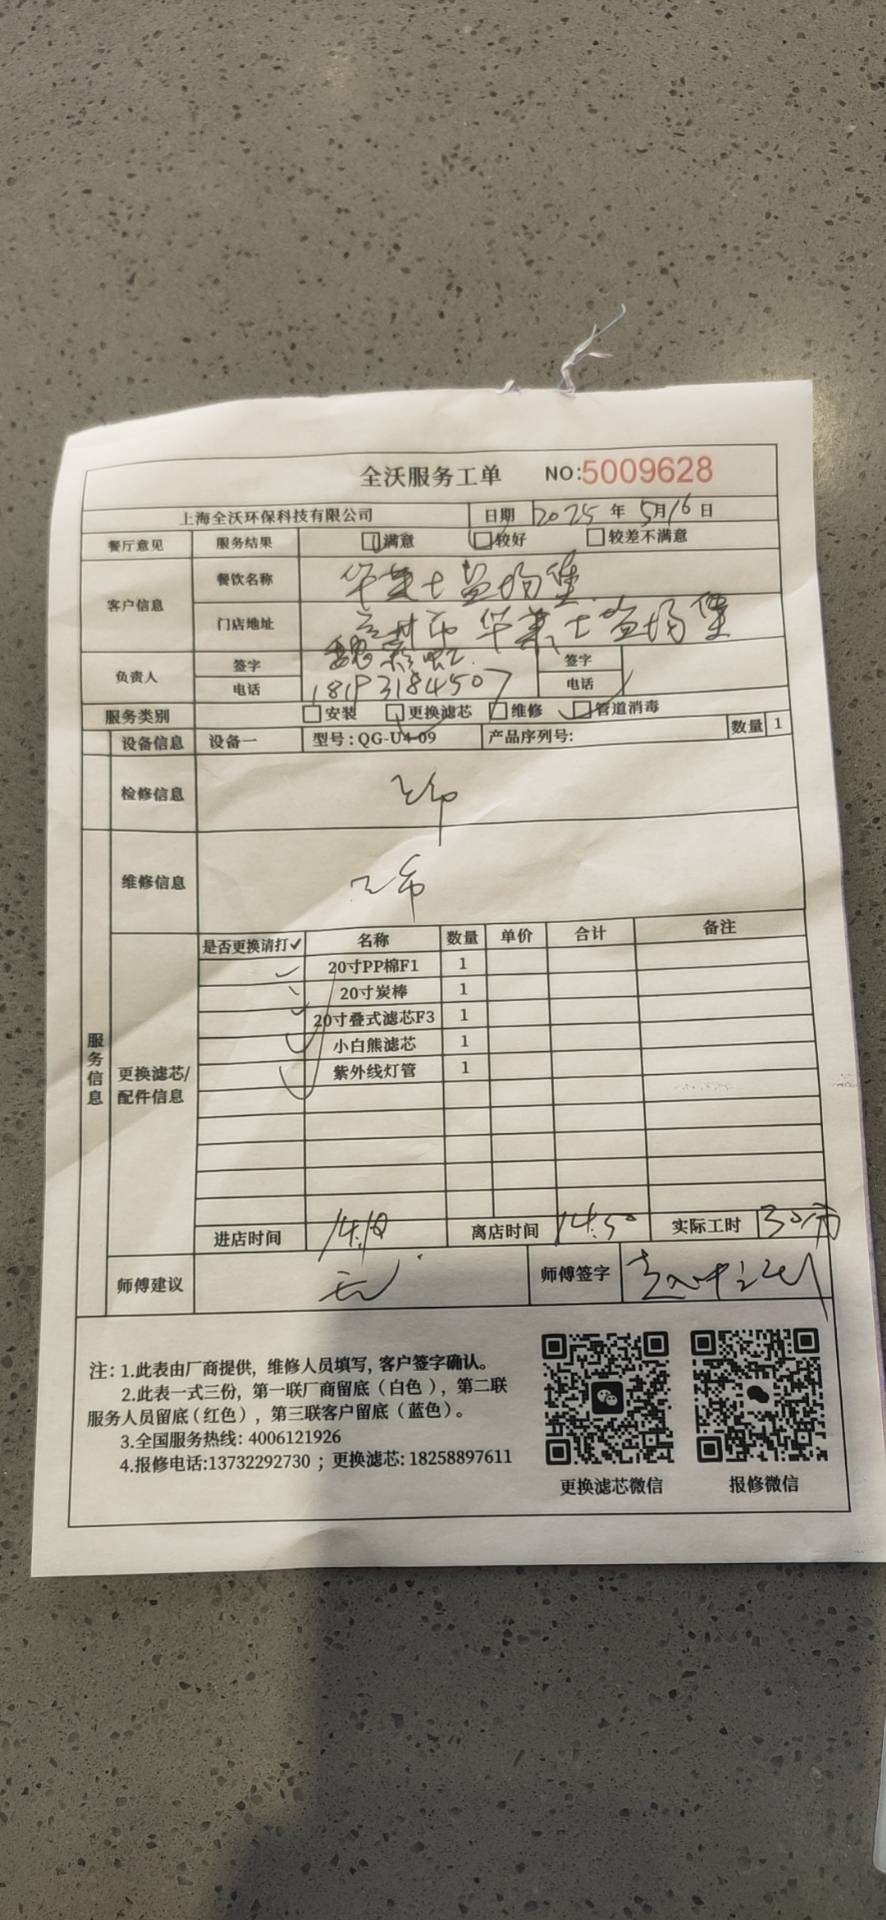 全沃服务工单 NO:5009628
上海全沃环保科技有限公司 日期 2025 年 5月16日
餐厅意见 服务结果 满意 较好 较差不满意
客户信息 餐饮名称 华莱士
门店地址 华莱士
负责人 签字 签字
电话 18193184507 电话
服务类别 安装 更换滤芯 维修 管道消毒
设备信息 设备一 型号:QG-U4-09 产品序列号: 数量 1
检修信息
维修信息
服务信息
更换滤芯/配件信息
是否更换请打✓ 名称 数量 单价 合计 备注
20寸PP棉F1 1
20寸炭棒 1
20寸叠式滤芯F3 1
小白熊滤芯 1
紫外线灯管 1
进店时间 离店时间 14.50 实际工时
师傅建议 无 师傅签字
注: 1.此表由厂商提供, 维修人员填写, 客户签字确认。
2.此表一式三份, 第一联厂商留底(白色), 第二联
服务人员留底(红色), 第三联客户留底(蓝色)。
3.全国服务热线: 4006121926
4.报修电话:13732292730 ; 更换滤芯: 18258897611
更换滤芯微信 报修微信